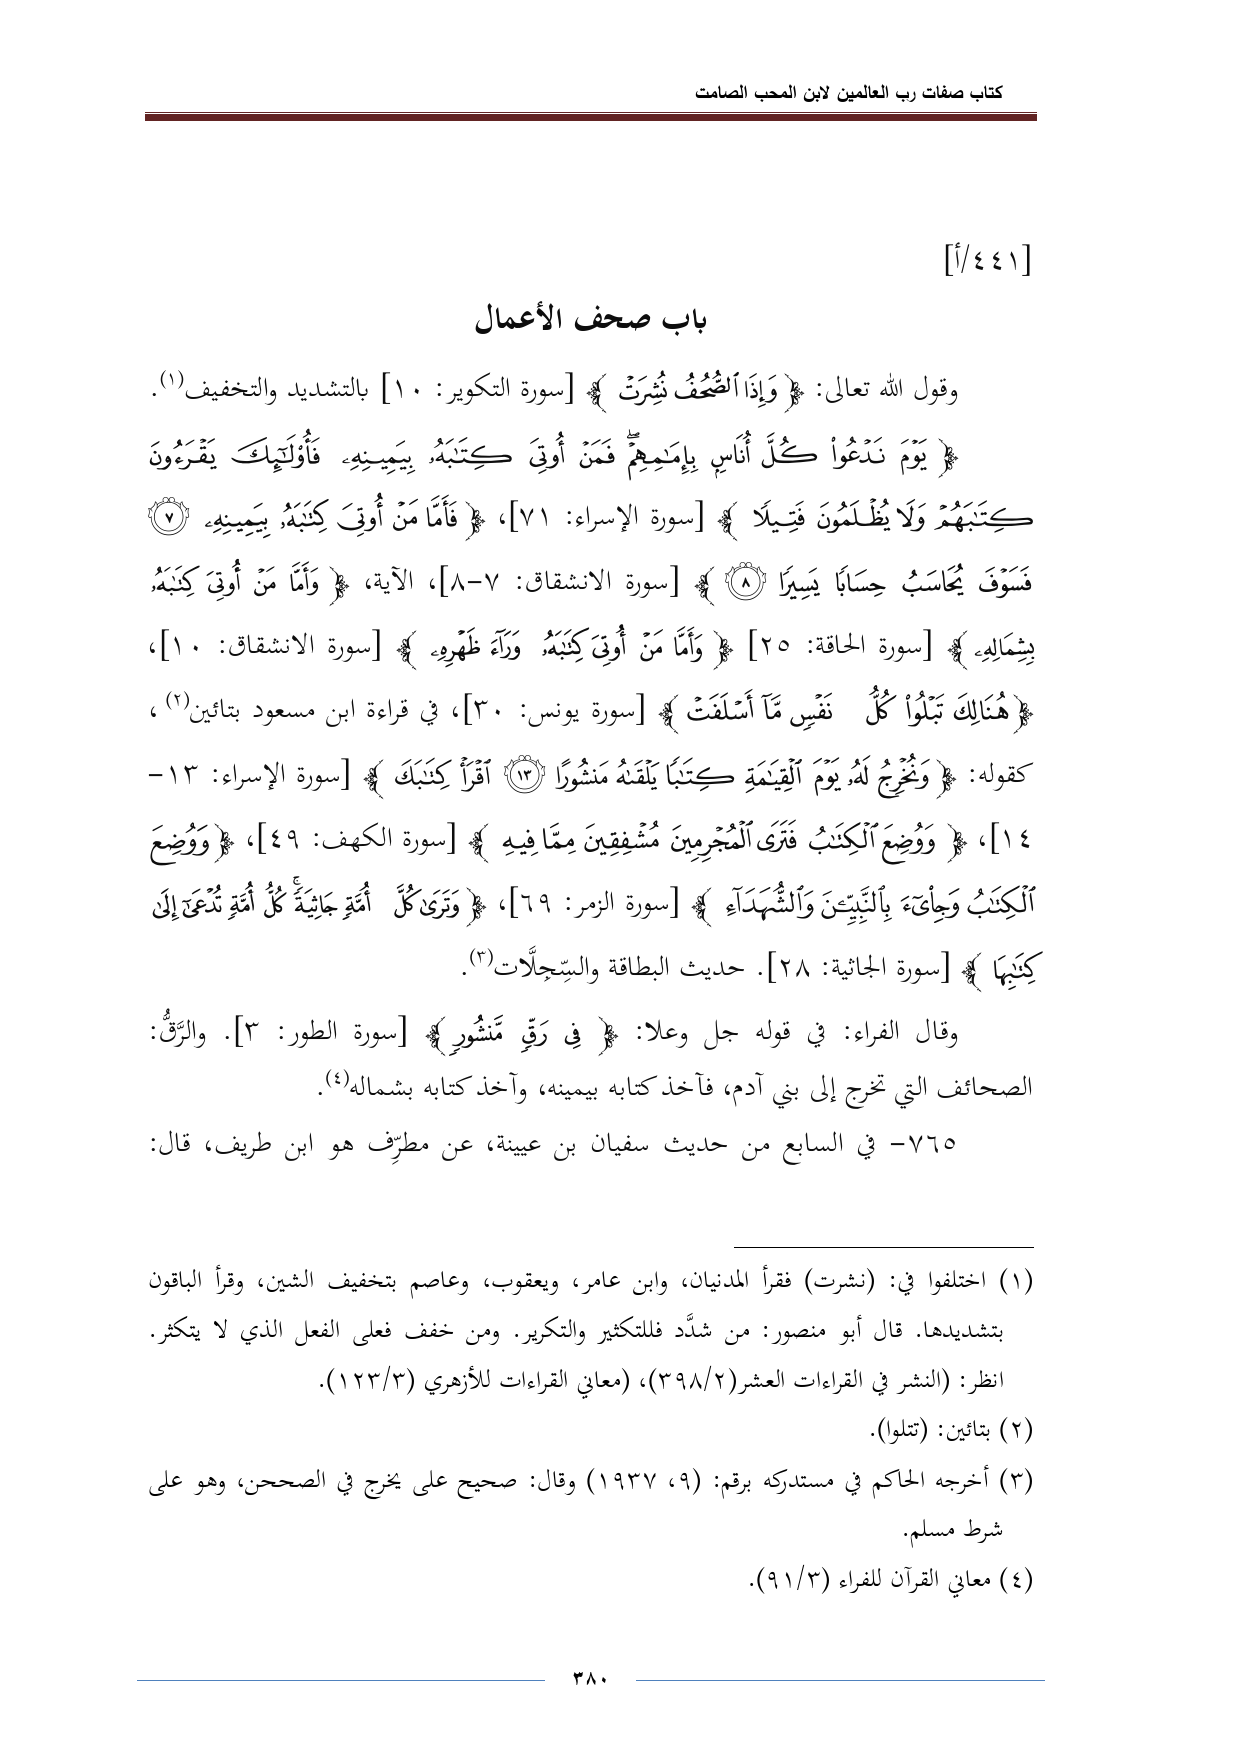 كتاب صفات رب العالمين لابن المحب الصامت
[٤٤١/أ]
باب صحف الأعمال
وقول الله تعالى: ﴿ وَإِذَا ٱلصُّحُفُ نُشِرَتۡ ﴾ [سورة التكوير: ١٠] بالتشديد والتخفيف(١).
﴿ يَوۡمَ نَدۡعُواْ كُلَّ أُنَاسِۭ بِإِمَٰمِهِمۡۖ فَمَنۡ أُوتِيَ كِتَٰبَهُۥ بِيَمِينِهِۦ فَأُوْلَٰٓئِكَ يَقۡرَءُونَ
كِتَٰبَهُمۡ وَلَا يُظۡلَمُونَ فَتِيلٗا ﴾ [سورة الإسراء: ٧١]، ﴿ فَأَمَّا مَنۡ أُوتِيَ كِتَٰبَهُۥ بِيَمِينِهِۦ ٧
فَسَوۡفَ يُحَاسَبُ حِسَابٗا يَسِيرٗا ٨ ﴾ [سورة الانشقاق: ٧-٨]، الآية، ﴿ وَأَمَّا مَنۡ أُوتِيَ كِتَٰبَهُۥ
بِشِمَالِهِۦ ﴾ [سورة الحاقة: ٢٥] ﴿ وَأَمَّا مَنۡ أُوتِيَ كِتَٰبَهُۥ وَرَآءَ ظَهۡرِهِۦ ﴾ [سورة الانشقاق: ١٠]،
﴿ هُنَالِكَ تَبۡلُواْ كُلُّ نَفۡسٖ مَّآ أَسۡلَفَتۡ ﴾ [سورة يونس: ٣٠]، في قراءة ابن مسعود بتائين(٢) ،
كقوله: ﴿ وَنُخۡرِجُ لَهُۥ يَوۡمَ ٱلۡقِيَٰمَةِ كِتَٰبٗا يَلۡقَىٰهُ مَنشُورًا ١٣ ٱقۡرَأۡ كِتَٰبَكَ ﴾ [سورة الإسراء: ١٣-
١٤]، ﴿ وَوُضِعَ ٱلۡكِتَٰبُ فَتَرَى ٱلۡمُجۡرِمِينَ مُشۡفِقِينَ مِمَّا فِيهِ ﴾ [سورة الكهف: ٤٩]، ﴿ وَوُضِعَ
ٱلۡكِتَٰبُ وَجِاْيٓءَ بِٱلنَّبِيِّـۧنَ وَٱلشُّهَدَآءِ ﴾ [سورة الزمر: ٦٩]، ﴿ وَتَرَىٰ كُلَّ أُمَّةٖ جَاثِيَةٗۚ كُلُّ أُمَّةٖ تُدۡعَىٰٓ إِلَىٰ
كِتَٰبِهَا ﴾ [سورة الجاثية: ٢٨]. حديث البطاقة والسِّجِلَّات(٣).
وقال الفراء: في قوله جل وعلا: ﴿ فِي رَقّٖ مَّنشُورٖ ﴾ [سورة الطور: ٣]. والرَّقُّ:
الصحائف التي تخرج إلى بني آدم، فآخذ كتابه بيمينه، وآخذ كتابه بشماله(٤).
٧٦٥- في السابع من حديث سفيان بن عيينة، عن مطرِّف هو ابن طريف، قال:
(١) اختلفوا في: (نشرت) فقرأ المدنيان، وابن عامر، ويعقوب، وعاصم بتخفيف الشين، وقرأ الباقون
بتشديدها. قال أبو منصور: من شدَّد فللتكثير والتكرير. ومن خفف فعلى الفعل الذي لا يتكثر.
انظر: (النشر في القراءات العشر(٣٩٨/٢)، (معاني القراءات للأزهري (١٢٣/٣).
(٢) بتائين: (تتلوا).
(٣) أخرجه الحاكم في مستدركه برقم: (٩، ١٩٣٧) وقال: صحيح على يخرج في الصححن، وهو على
شرط مسلم.
(٤) معاني القرآن للفراء (٩١/٣).
٣٨٠